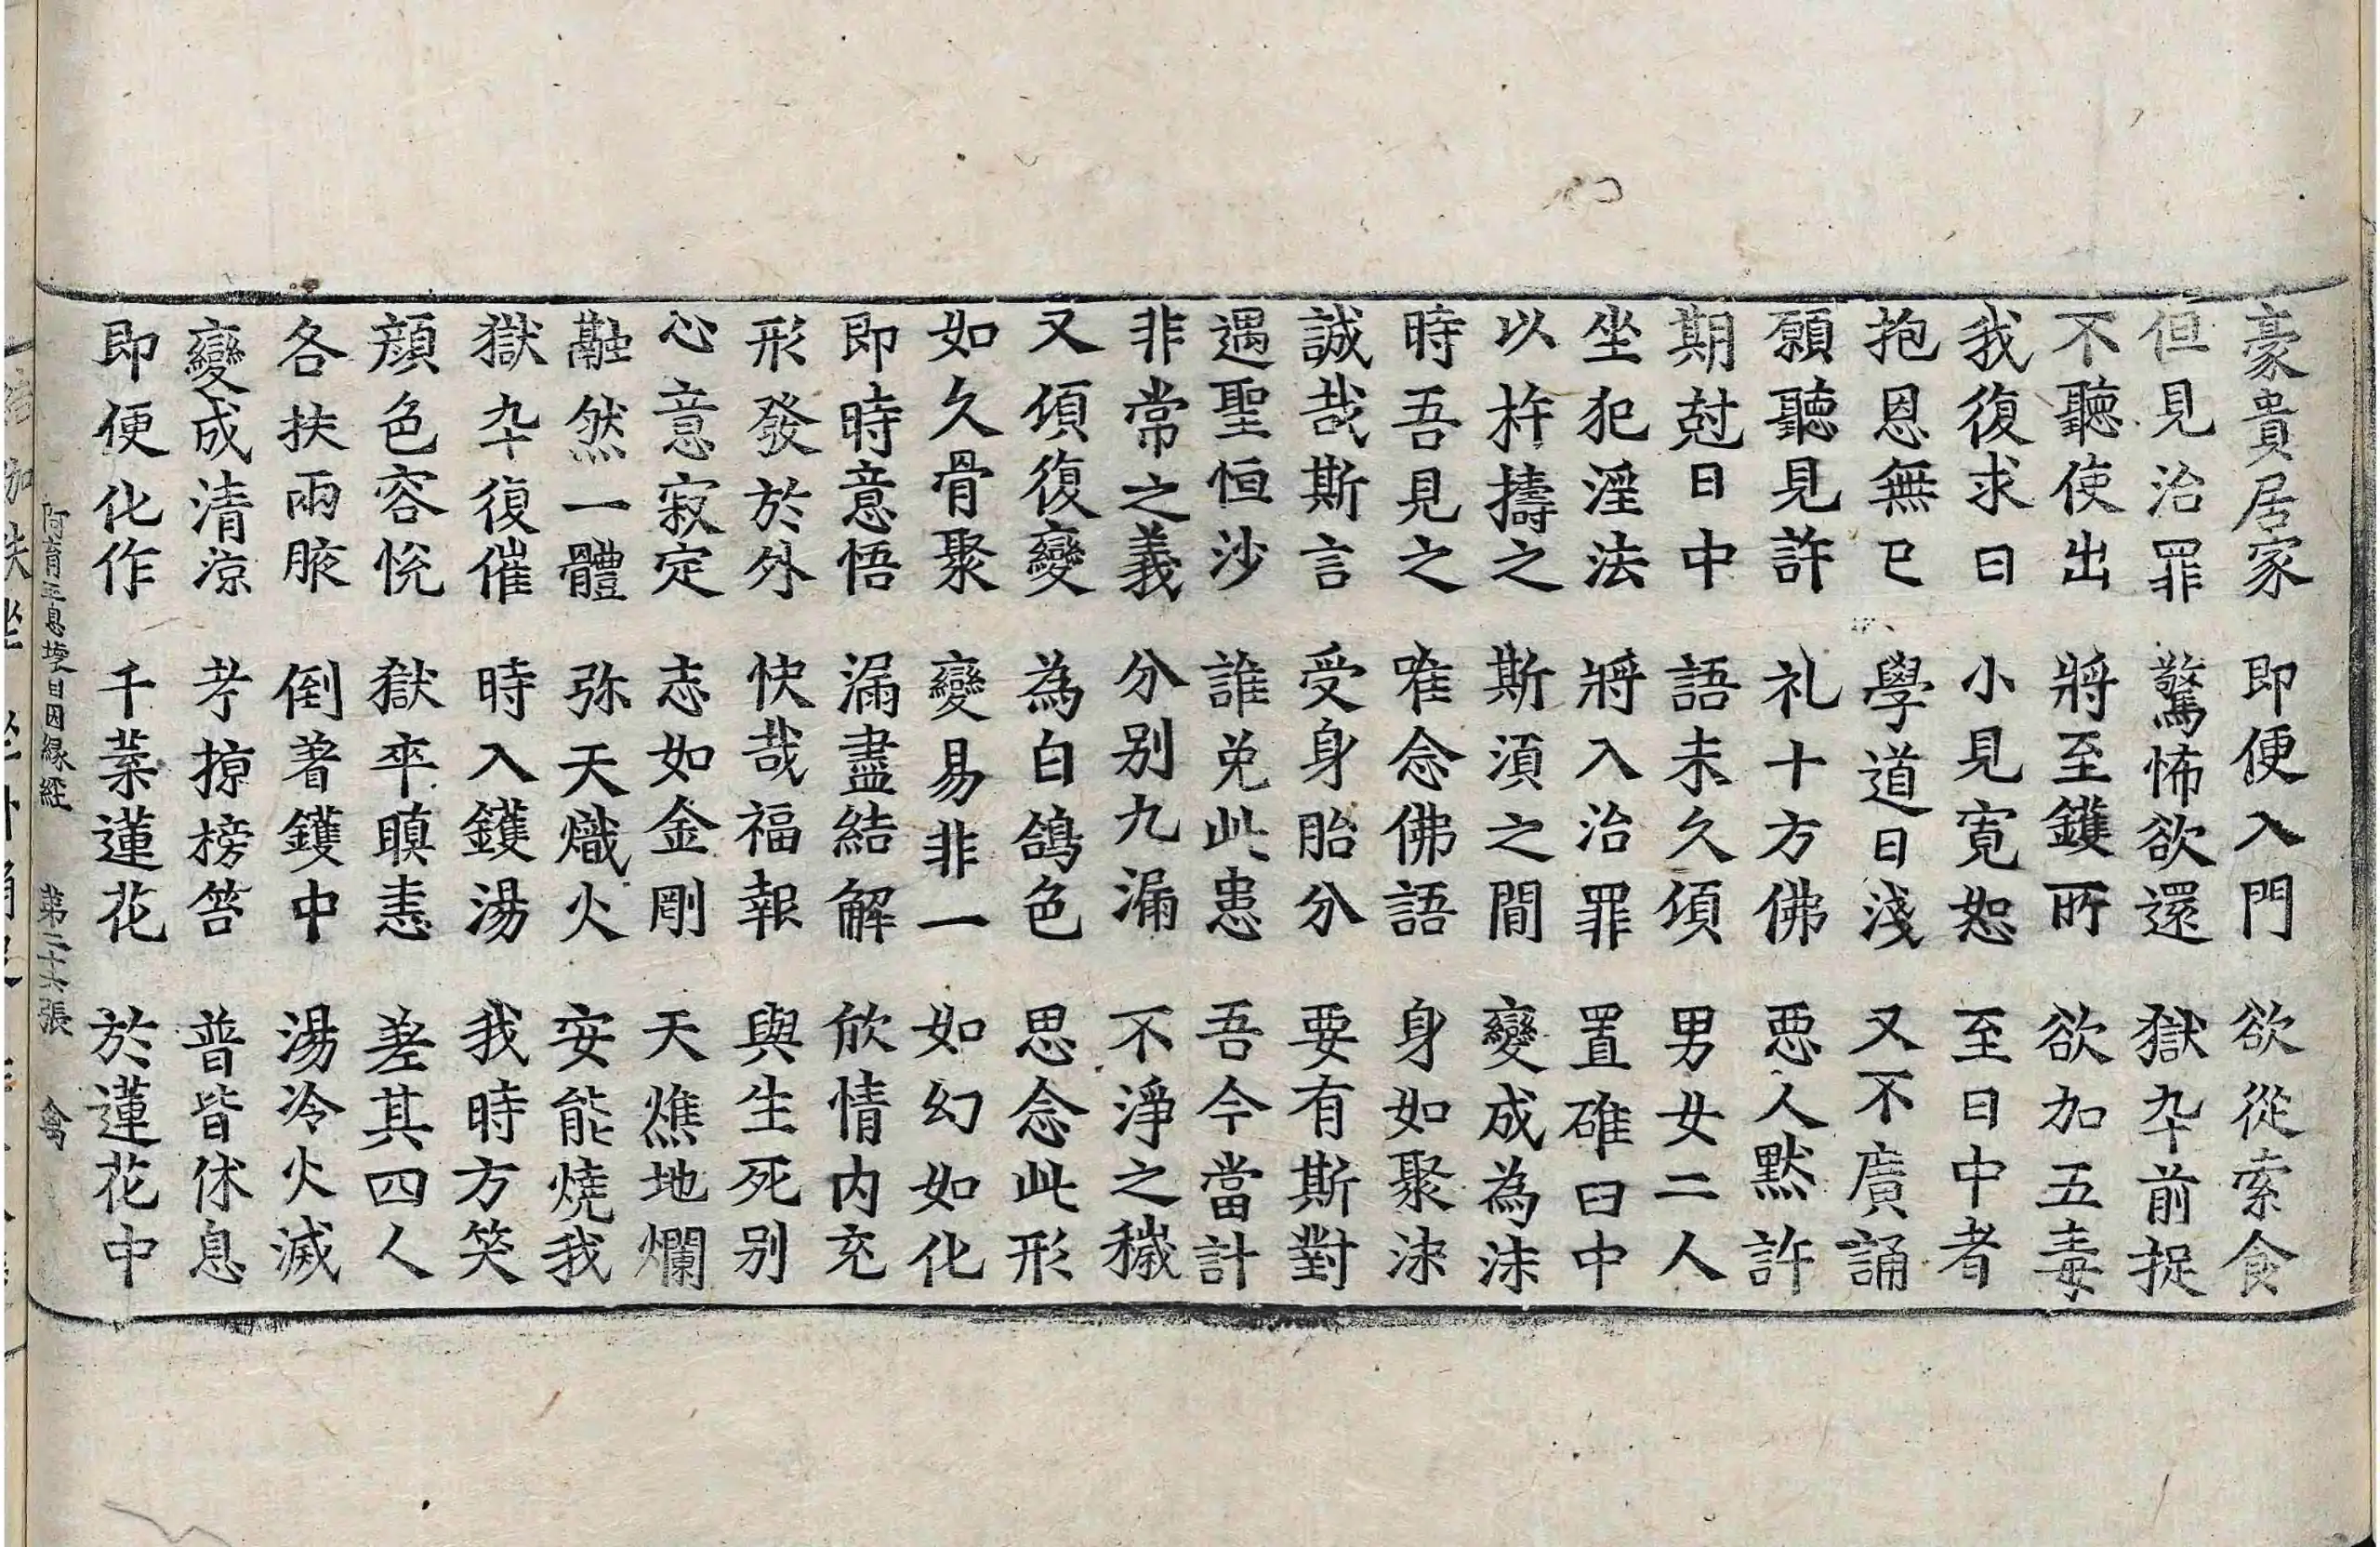 豪貴居家 即便入門 欲從索食
但見治罪 驚怖欲還 獄卒前捉
不聽使出 將至鑊所 欲加五毒
我復求曰 小見寬恕 至日中者
抱恩無已 學道日淺 又不廣誦
願聽見許 礼十方佛 惡人默許
期尅日中 語未久頃 男女二人
坐犯淫法 將入治罪 置碓臼中
以杵擣之 斯湏之間 變成為沫
時吾見之 唯念佛語 身如聚沫
誠哉斯言 受身胎分 要有斯對
遇聖恒沙 誰免此患 吾今當計
非常之義 分別九漏 不淨之穢
又頃復變 為白鴿色 思念此形
如久骨聚 變易非一 如幻如化
即時意悟 漏盡結解 欣情內充
形發於外 快哉福報 與生死別
心意寂定 志如金剛 天燋地爛
融然一體 弥天熾火 安能燒我
獄卒復催 時入鑊湯 我時方笑
顔色容恱 獄卒瞋恚 差其四人
各扶兩腋 倒著鑊中 湯冷火滅
變成清涼 考掠榜笞 普皆休息
即便化作 千葉蓮花 於蓮花中
阿育王息壞目因緣經 第二十六張 禽